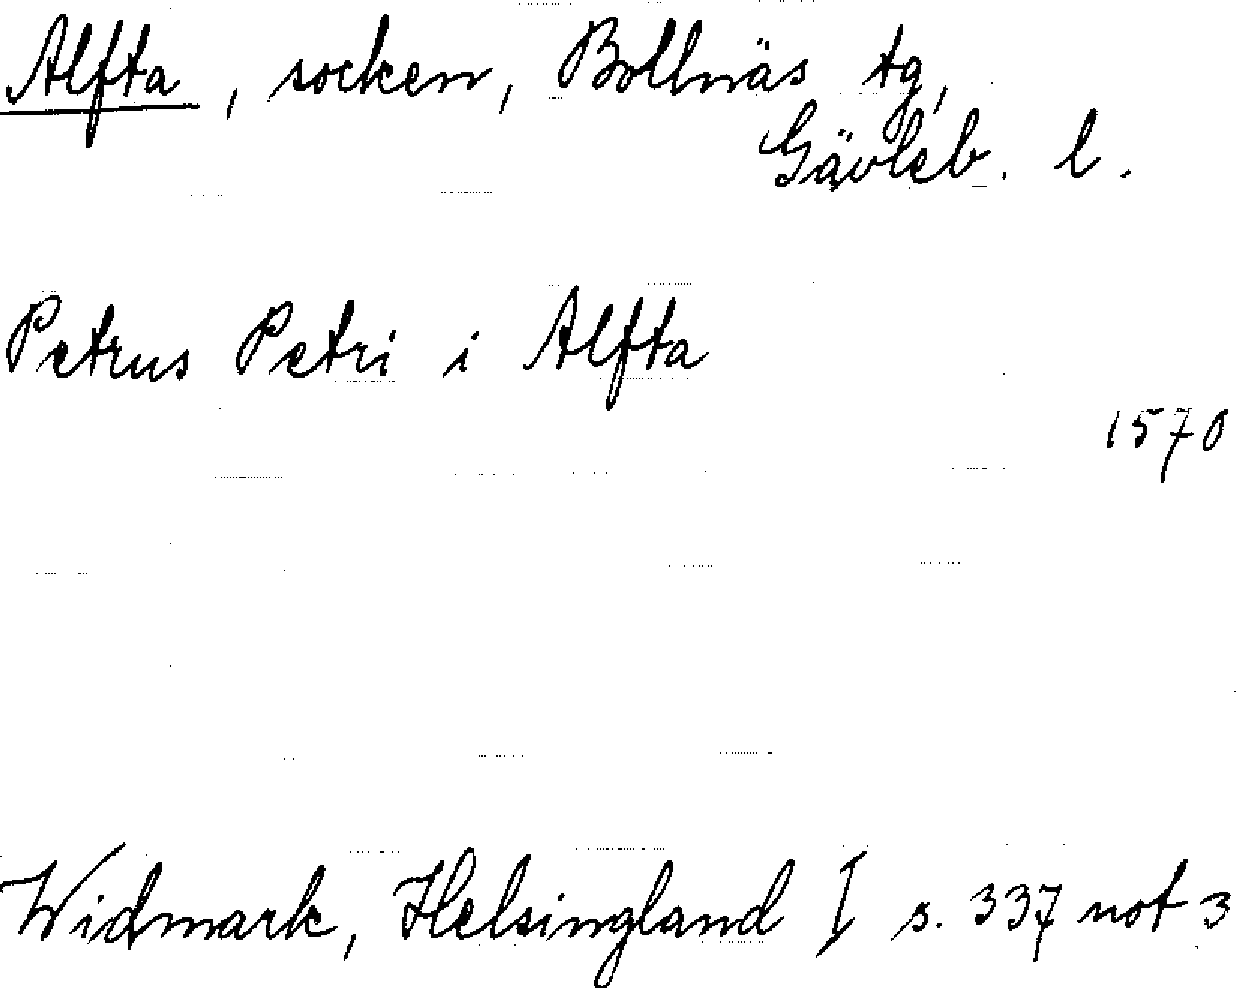 Alfta, socken, Bollnäs tg,
Gävleb. l.
Petrus Petri i Alfta
1570
Widmark, Helsingland I s. 337 not 3